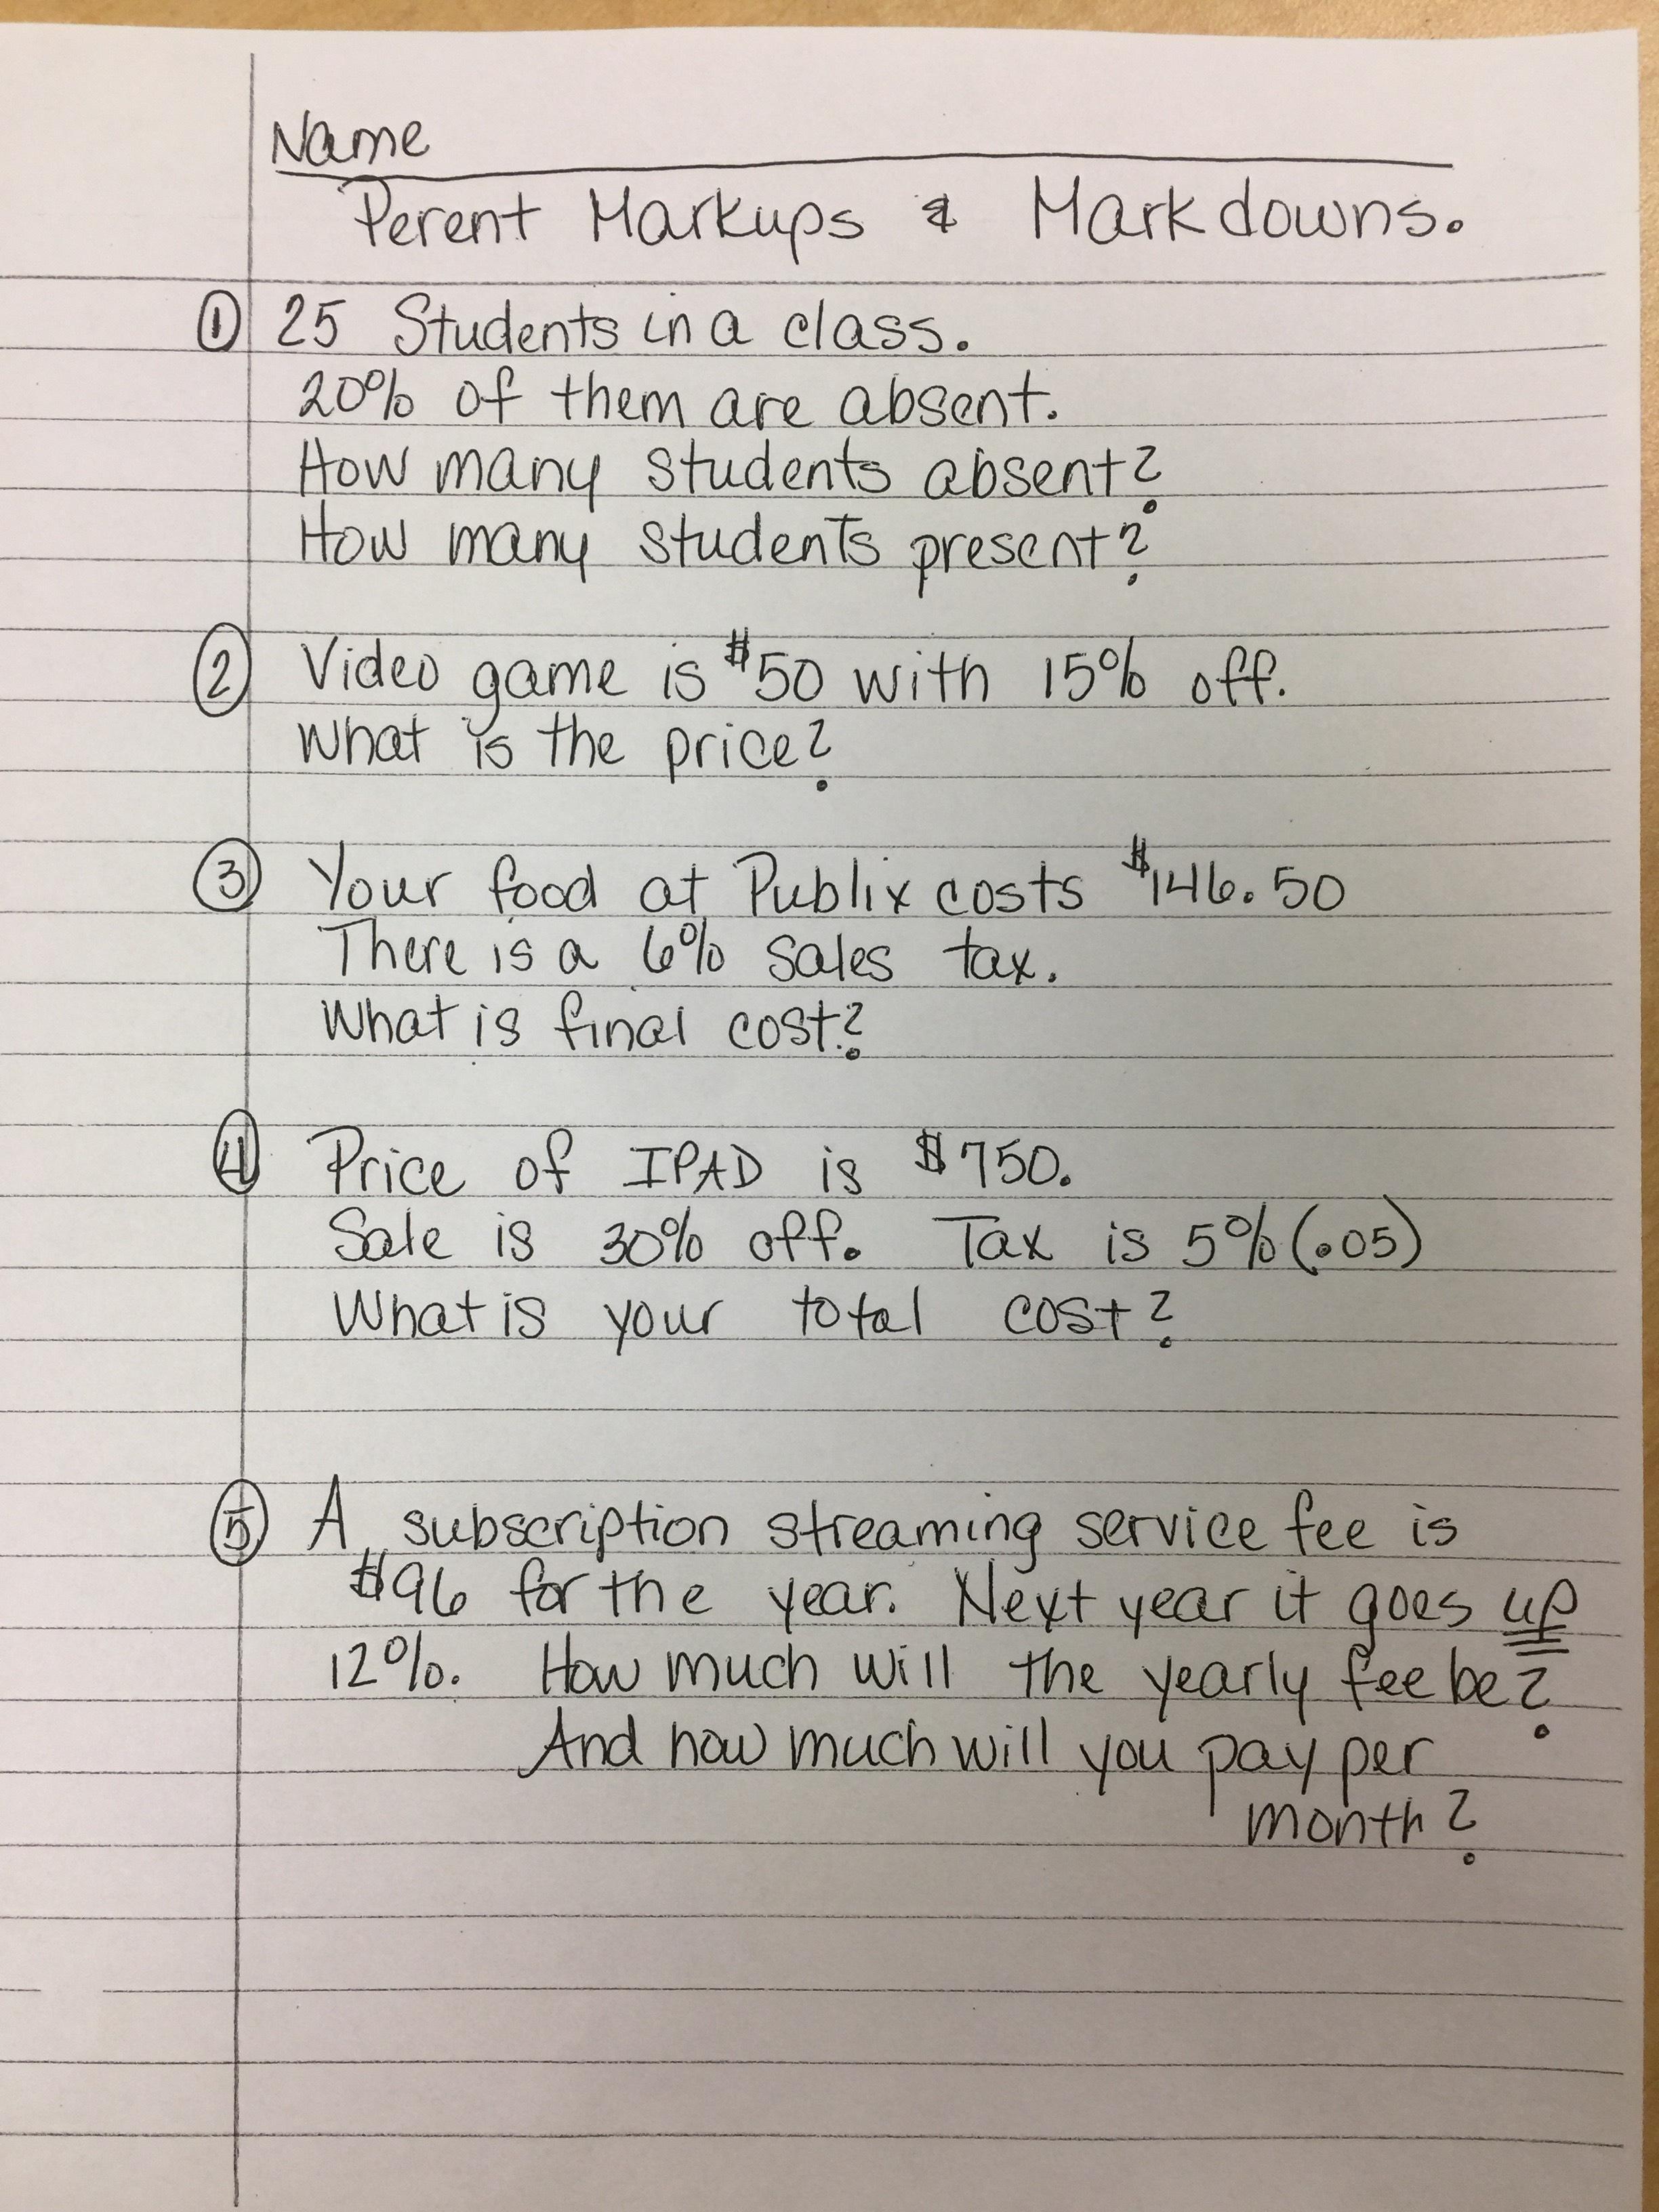 Name
Perent Markups & Markdowns.
① 25 Students in a class.
20% of them are absent.
How many students absent?
How many students present?
② Video game is $50 with 15% off.
What is the price?
③ Your food at Publix costs $146.50
There is a 6% sales tax.
What is final cost?
④ Price of IPAD is $750.
Sale is 30% off. Tax is 5% (.05)
What is your total cost?
⑤ A subscription streaming service fee is
$96 for the year. Next year it goes up
12%. How much will the yearly fee be?
And how much will you pay per
month?